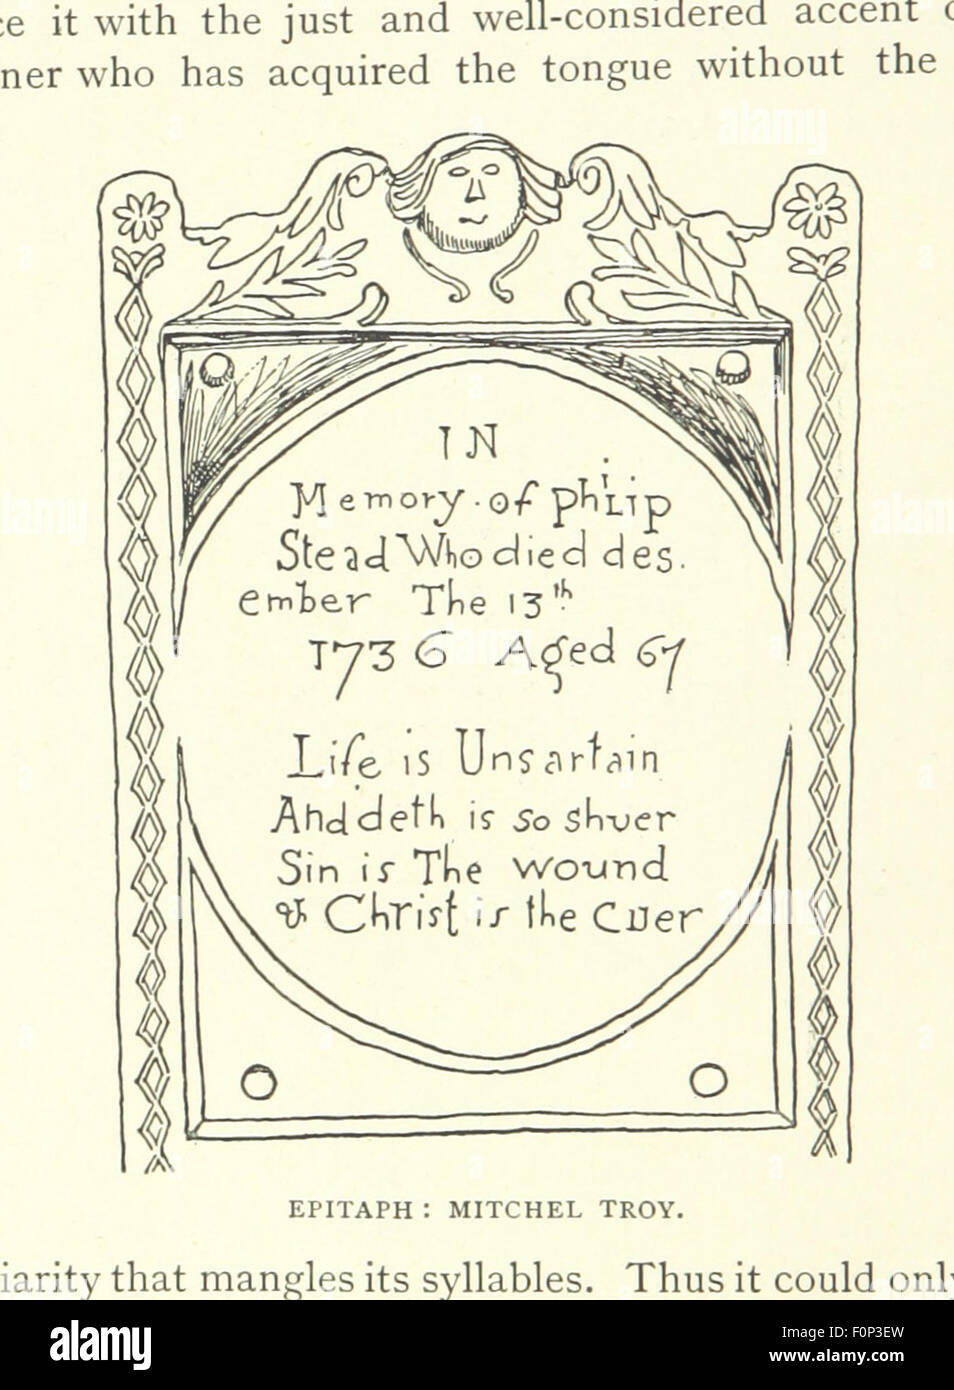 ce it with the just and well-considered accent
ner who has acquired the tongue without the
IN
Memory · of Philip
Stead Who died des.
ember The 13th
1736 Aged 67
Life is Unsartain
And deth is so shuer
Sin is The wound
& Christ is the Cuer
EPITAPH: MITCHEL TROY.
iarity that mangles its syllables. Thus it could only
alamy
Image ID: F0P3EW
www.alamy.com